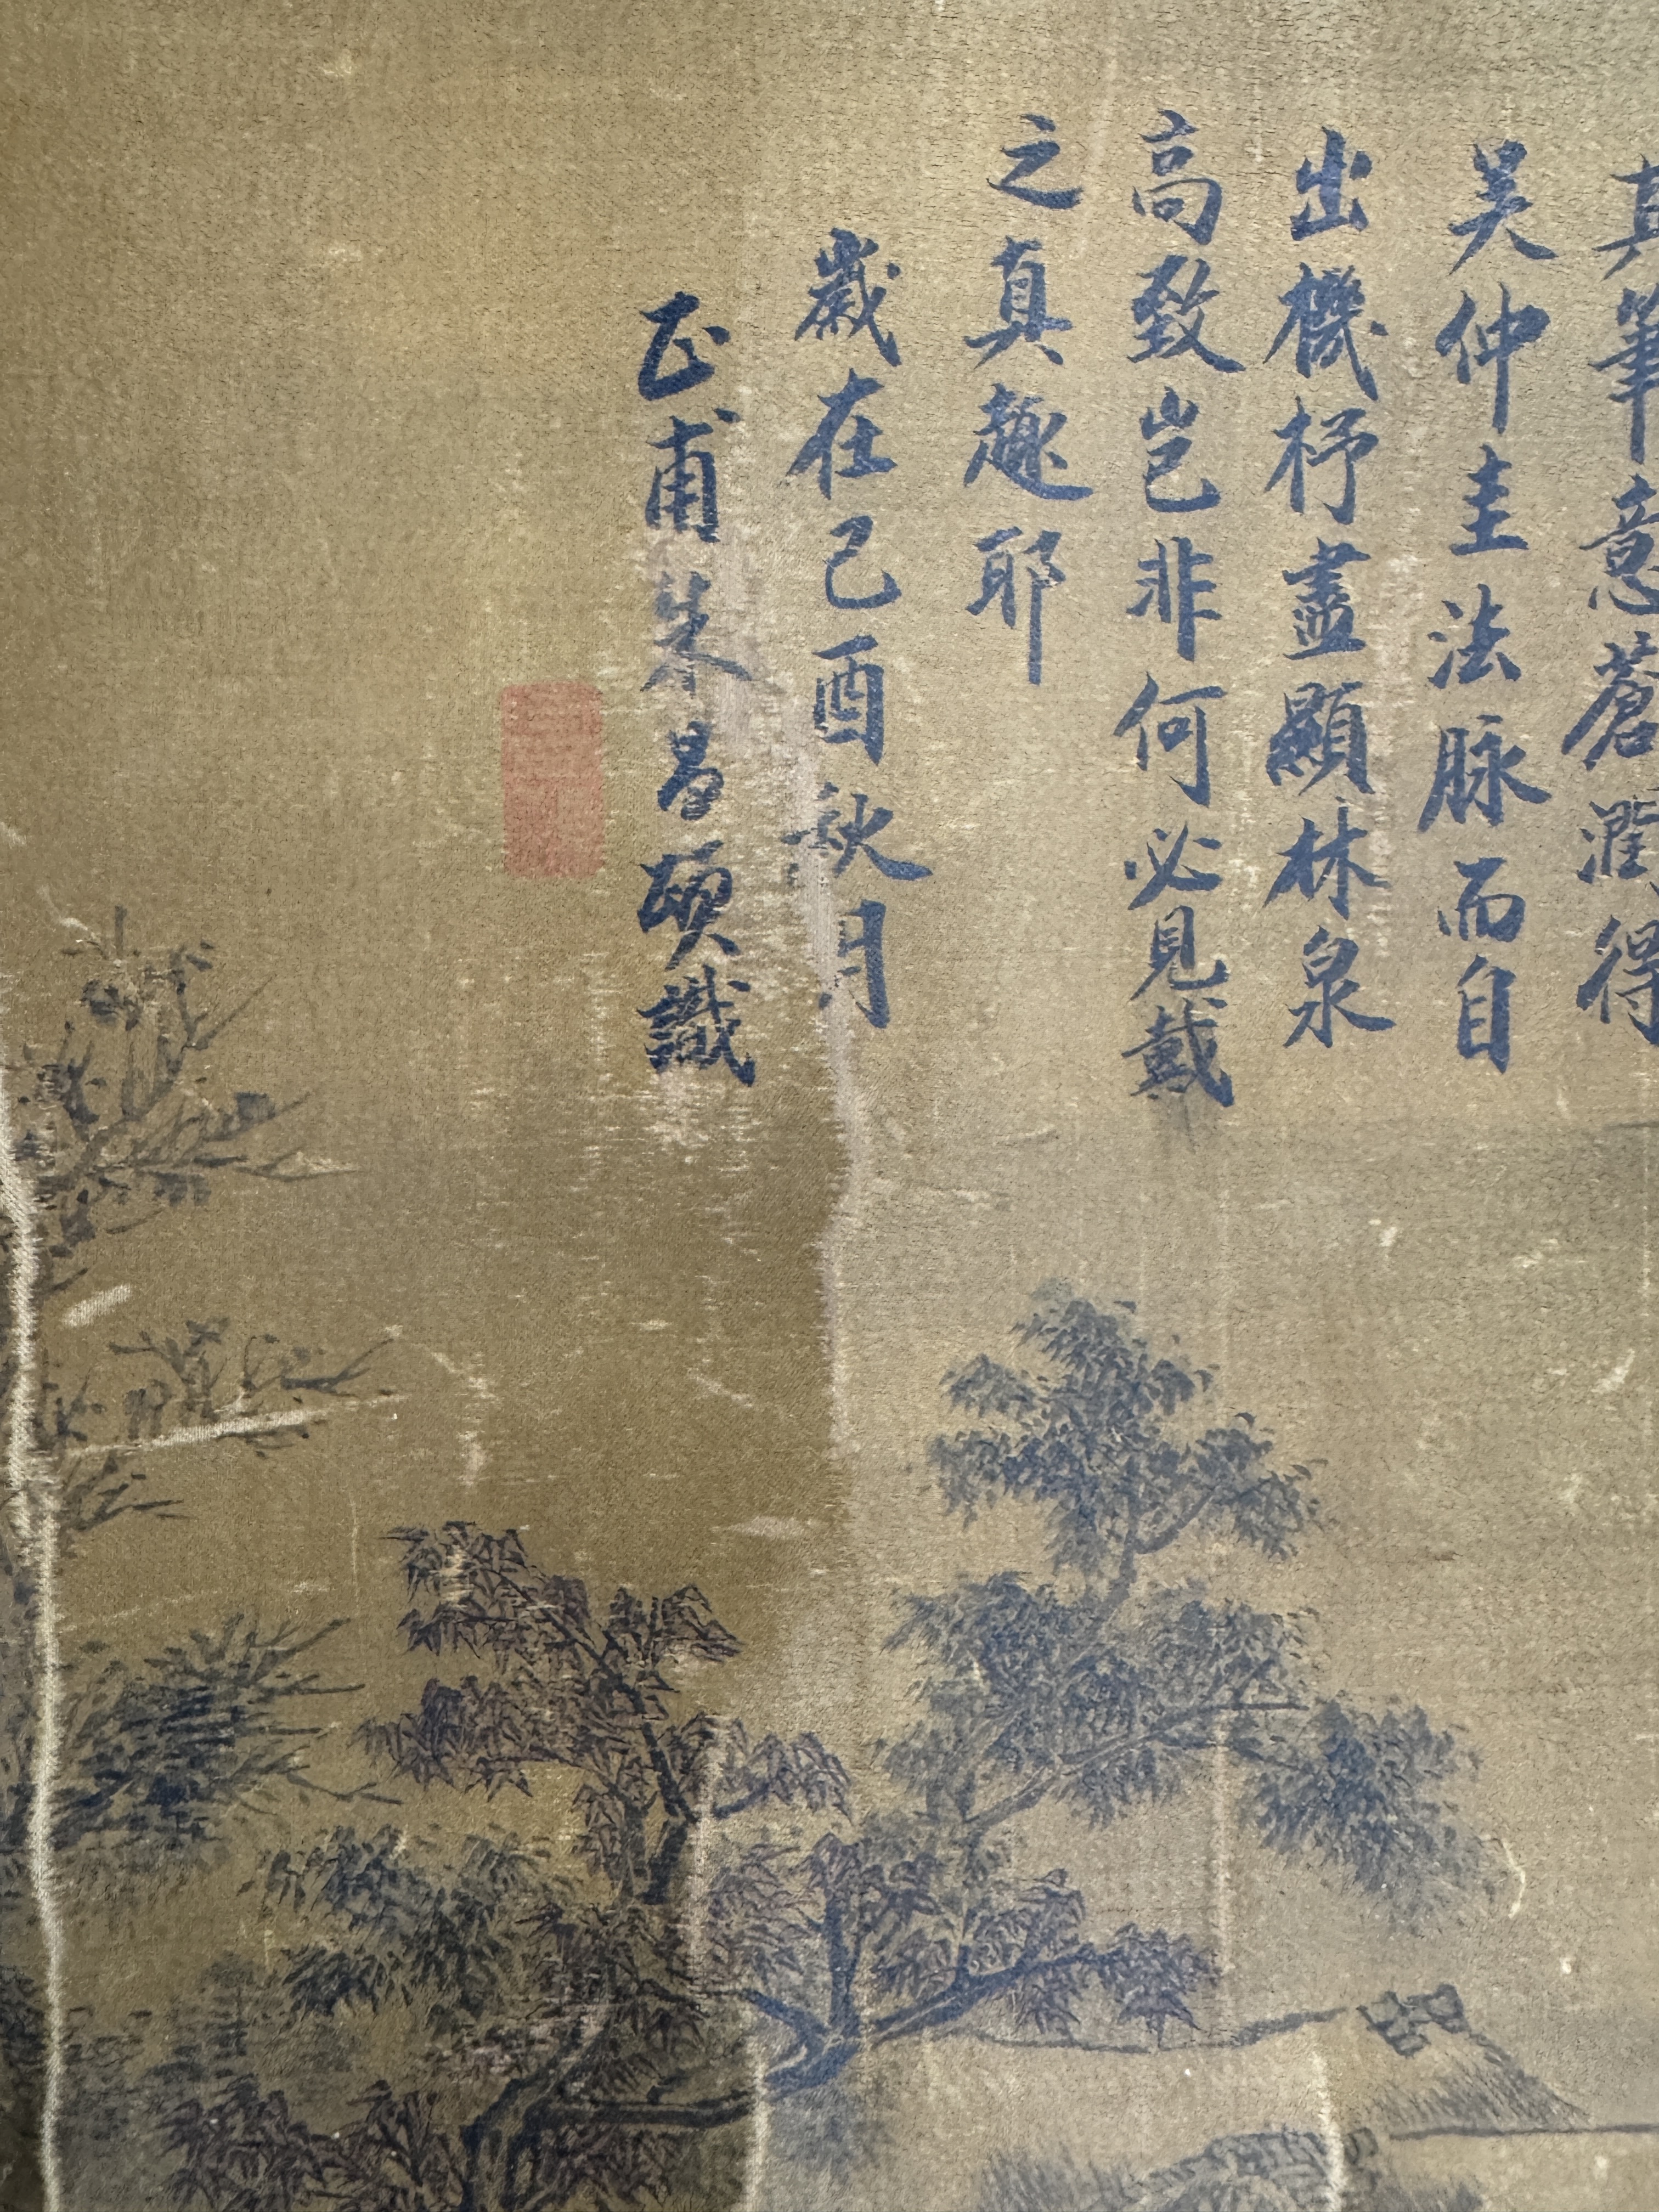 真筆意蒼潤得
吴仲圭法脉而自
出機杼盡顯林泉
高致豈非何必見戴
之真趣耶
歲在己酉秋月
正甫朱昌頤識